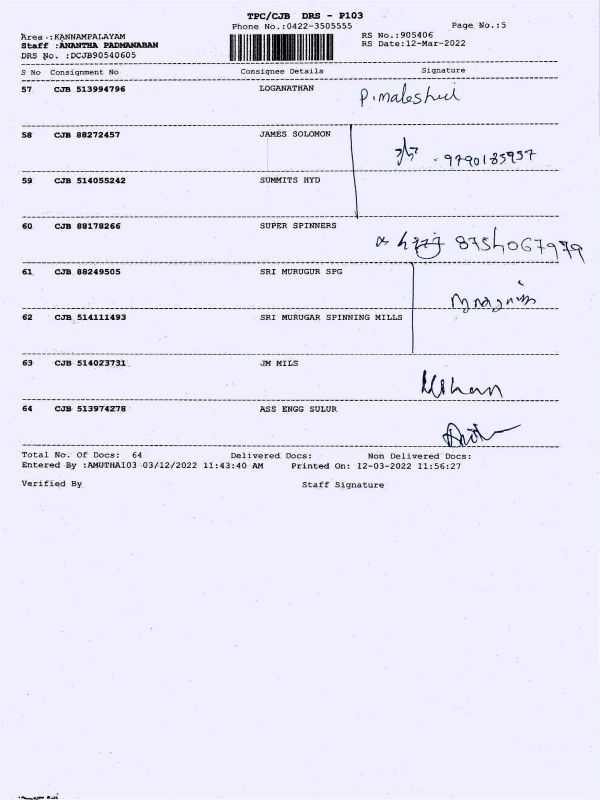 TPC/CJB DRS - P103
Phone No.:0422-3505555 Page No.:5
Area :KANNAMPALAYAM RS No.:905406
Staff :ANANTHA PADMANABAN RS Date:12-Mar-2022
DRS No. :DCJB90540605
S No Consignment No Consignee Details Signature
57 CJB 513994796 LOGANATHAN
58 CJB 88272457 JAMES SOLOMON
9790183937
59 CJB 514055242 SUMMITS HYD
60 CJB 88178266 SUPER SPINNERS
8754067979
61 CJB 88249505 SRI MURUGUR SPG
62 CJB 514111493 SRI MURUGAR SPINNING MILLS
63 CJB 514023731 JM MILS
Mohan
64 CJB 513974278 ASS ENGG SULUR
Total No. Of Docs: 64 Delivered Docs: Non Delivered Docs:
Entered By :AMUTHA103 03/12/2022 11:43:40 AM Printed On: 12-03-2022 11:56:27
Verified By Staff Signature